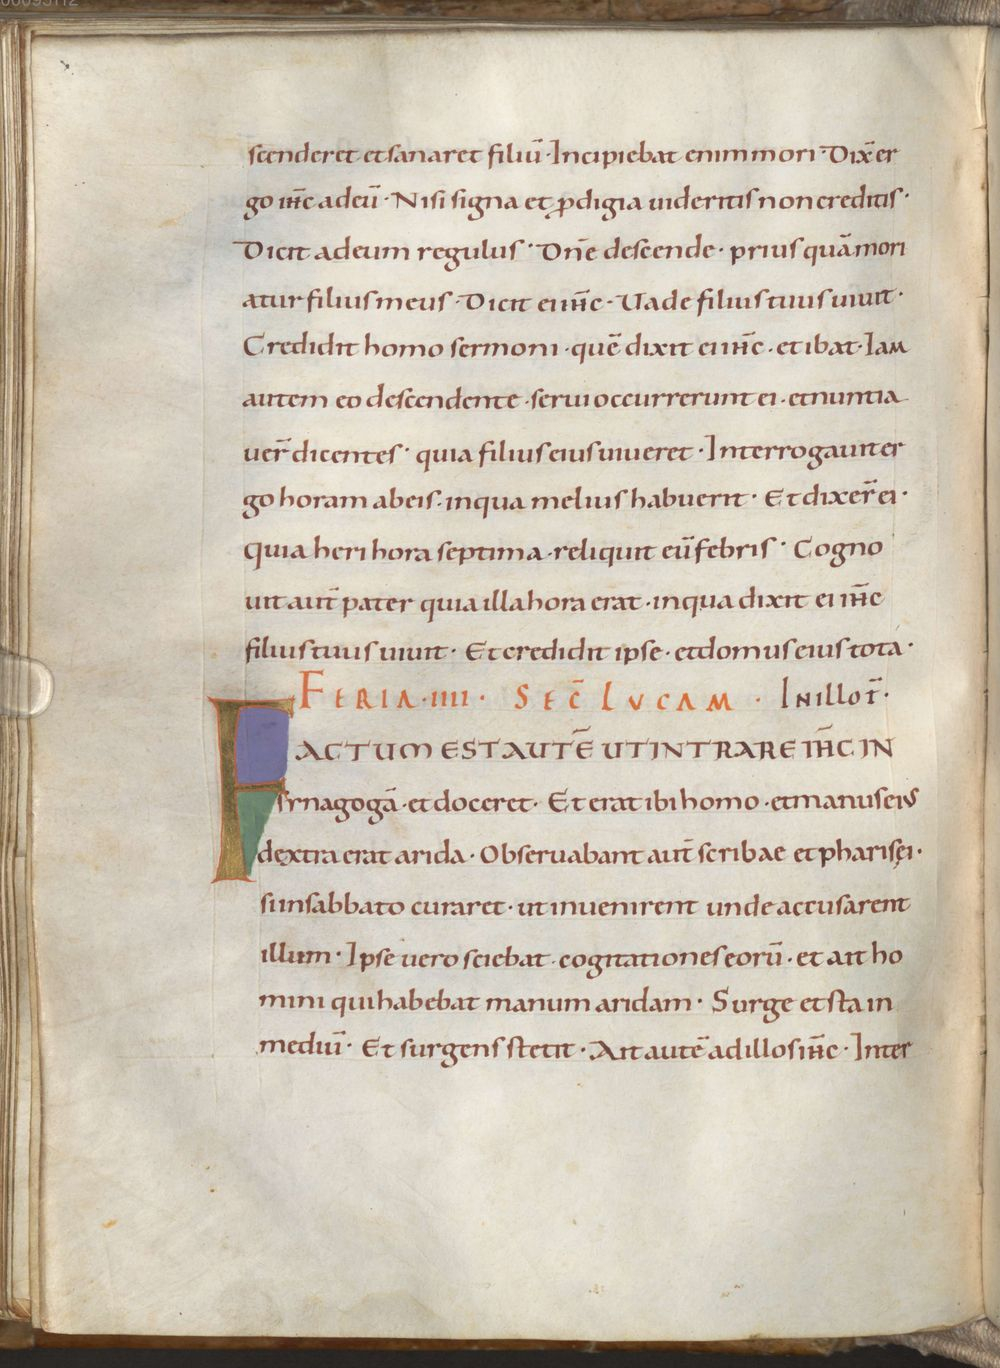 scenderet et sanaret filiū · Incipiebat enim mori · Dix̄ er
go ih̄c ad eū · Nisi signa et ꝓdigia uideritis non creditis ·
Dicit ad eum regulus · Dn̄e descende · prius quā mori
atur filius meus · Dicit ei ih̄c · Uade filius tuus uiuit ·
Credidit homo sermoni · quē dixit ei ih̄c · et ibat · Iam
autem eo descendente · serui occurrerunt ei · et nuntia
uer̄ dicentes · quia filius eius uiueret · Interrogauit er
go horam ab eis · in qua melius habuerit · Et dixer̄ ei ·
quia heri hora septima · reliquit eū febris · Cogno
uit aut̄ pater quia illa hora erat · in qua dixit ei ih̄c
filius tuus uiuit · Et credidit ipse · et domus eius tota ·
FERIA · IIII · SEC̄ LVCAM · IN ILLO T̄ ·
FACTUM EST AUTĒ UT INTRARE IH̄C IN
synagogā · et doceret · Et erat ibi homo · et manus eius
dextra erat arida · Obseruabant aut̄ scribae et pharisęi ·
si in sabbato curaret · ut inuenirent unde accusarent
illum · Ipse uero sciebat cogitationes eorū · et ait ho
mini qui habebat manum aridam · Surge et sta in
mediū · Et surgens stetit · Ait autē ad illos ih̄c · Inter